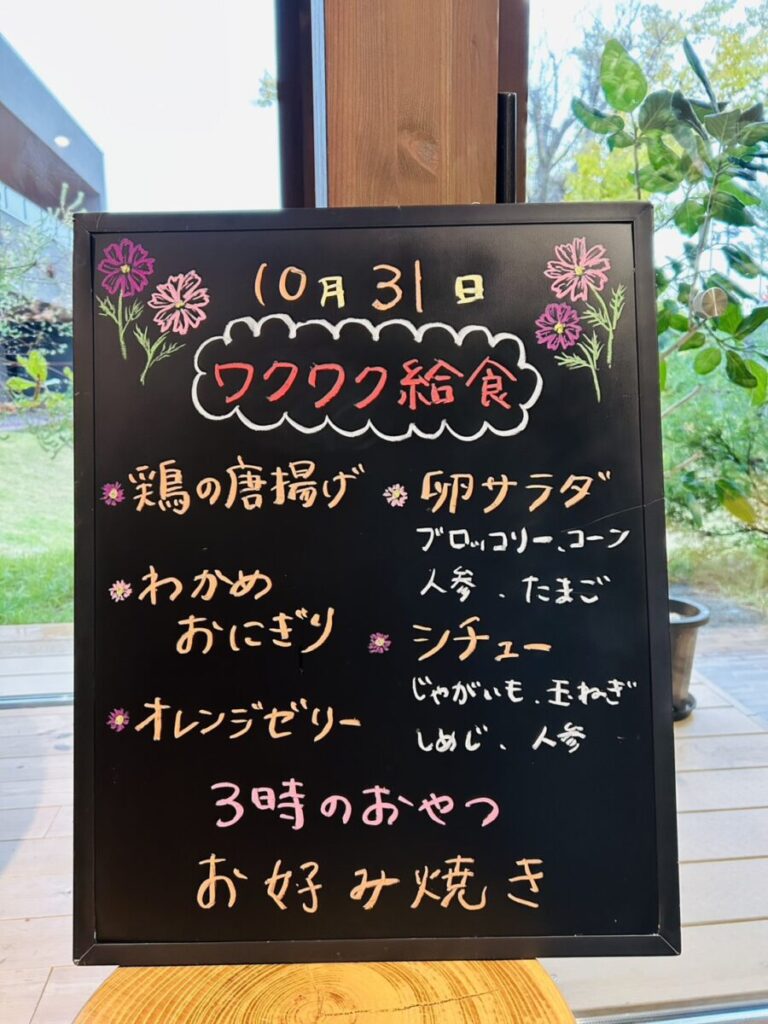 10月31日
ワクワク給食
鶏の唐揚げ
わかめ
おにぎり
オレンジゼリー
卵サラダ
ブロッコリー、コーン
人参、たまご
シチュー
じゃがいも、玉ねぎ
しめじ、人参
3時のおやつ
お好み焼き